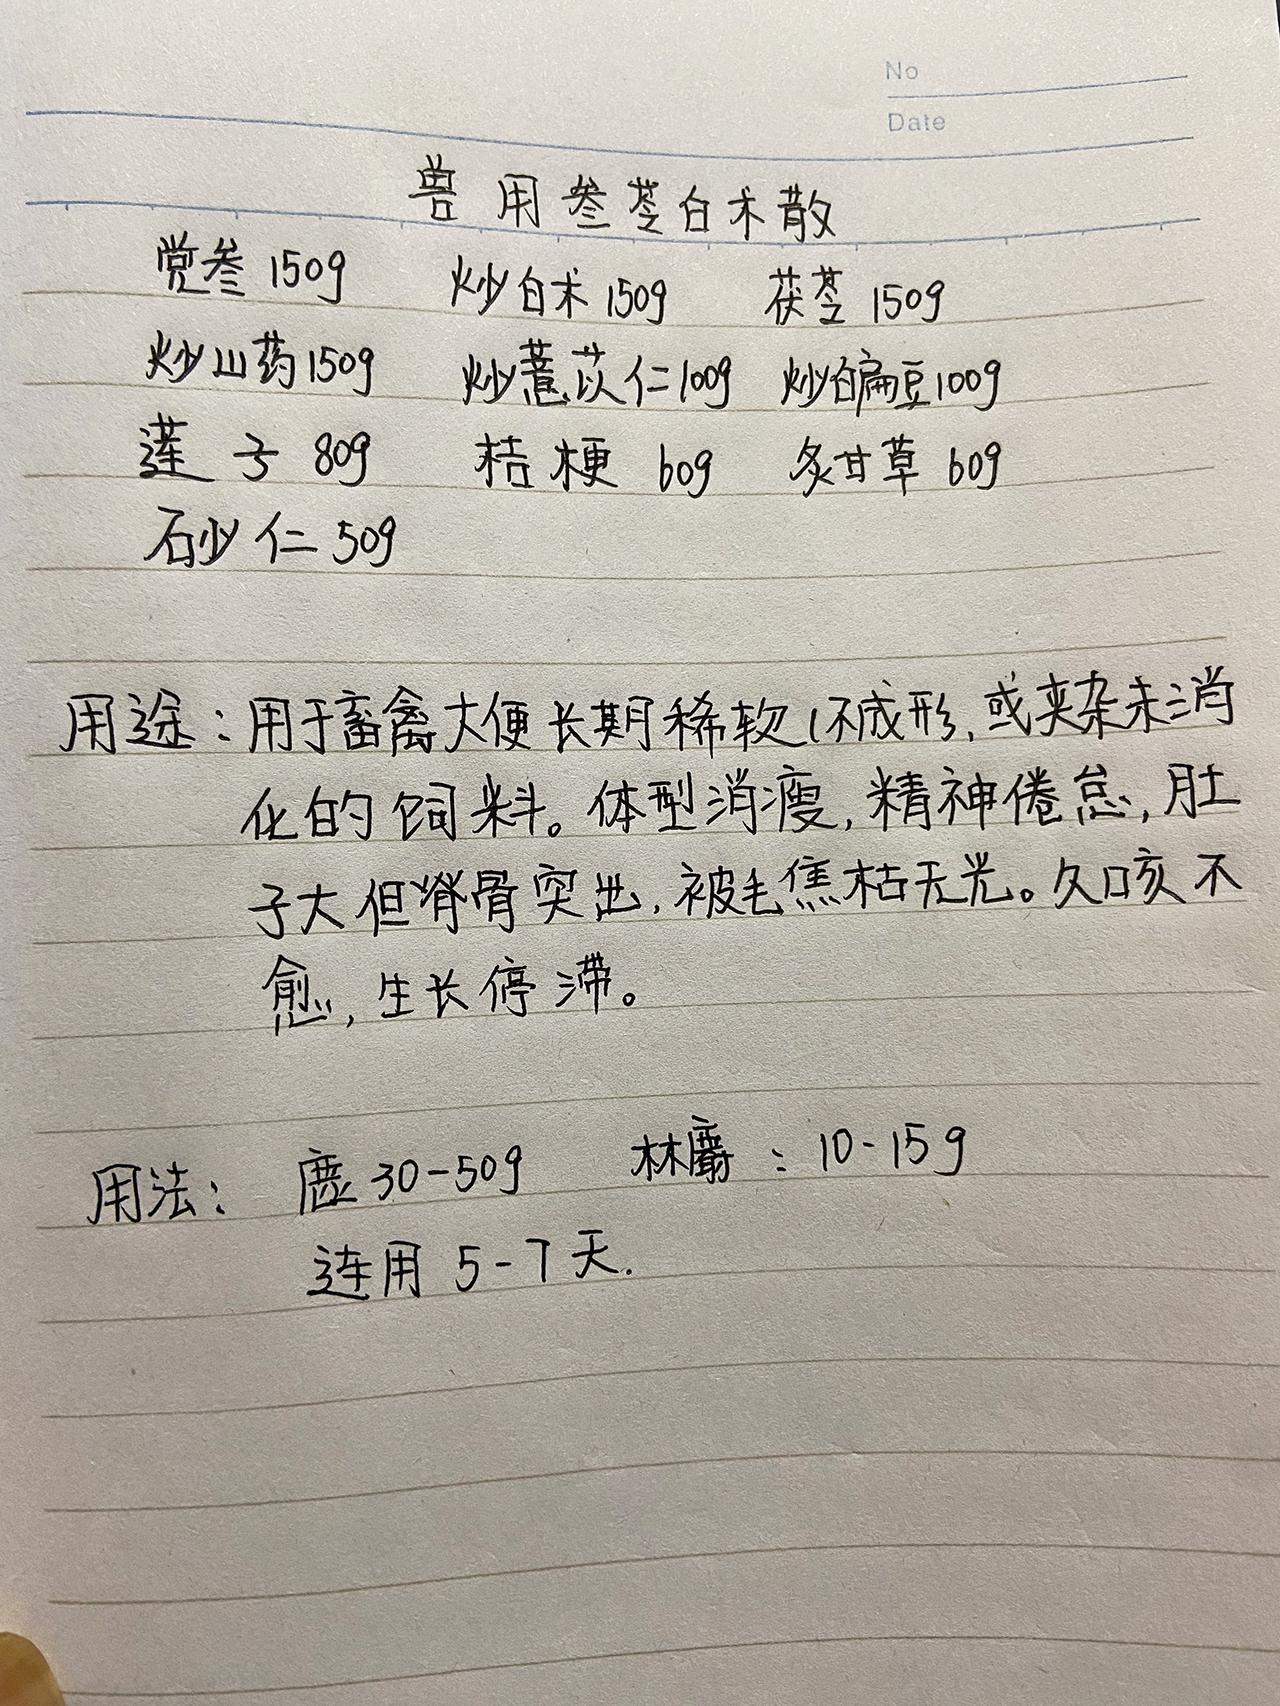 No
Date
兽用参苓白术散
党参 150g 炒白术 150g 茯苓 150g
炒山药 150g 炒薏苡仁 100g 炒白扁豆 100g
莲子 80g 桔梗 60g 炙甘草 60g
砂仁 50g
用途：用于畜禽大便长期稀软，不成形，或夹杂未消
化的饲料。体型消瘦，精神倦怠，肚
子大但脊骨突出，被毛焦枯无光。久咳不
愈，生长停滞。
用法： 鹿 30-50g 林麝：10-15g
连用 5-7天.